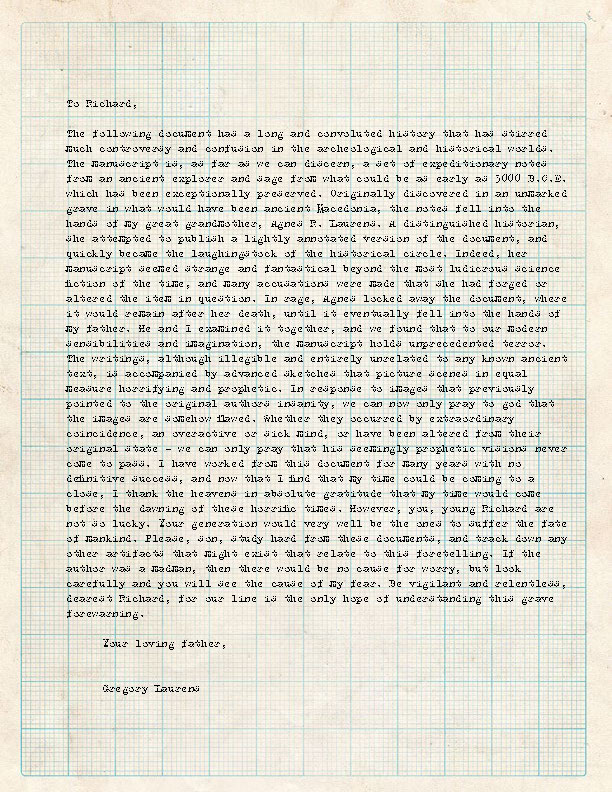 To Richard,
The following document has a long and convoluted history that has stirred
much controversy and confusion in the archeological and historical worlds.
The manuscript is, as far as we can discern, a set of expeditionary notes
from an ancient explorer and sage from what could be as early as 5000 B.C.E.
which has been exceptionally preserved. Originally discovered in an unmarked
grave in what would have been ancient Macedonia, the notes fell into the
hands of my great grandmother, Agnes R. Laurens. A distinguished historian,
she attempted to publish a lightly annotated version of the document, and
quickly became the laughingstock of the historical circle. Indeed, her
manuscript seemed strange and fantastical beyond the most ludicrous science
fiction of the time, and many accusations were made that she had forged or
altered the item in question. In rage, Agnes locked away the document, where
it would remain after her death, until it eventually fell into the hands of
my father. He and I examined it together, and we found that to our modern
sensibilities and imagination, the manuscript holds unprecedented terror.
The writings, although illegible and entirely unrelated to any known ancient
text, is accompanied by advanced sketches that picture scenes in equal
measure horrifying and prophetic. In response to images that previously
pointed to the original authors insanity, we can now only pray to god that
the images are somehow flawed. Whether they occurred by extraordinary
coincidence, an overactive or sick mind, or have been altered from their
original state - we can only pray that his seemingly prophetic visions never
come to pass. I have worked from this document for many years with no
definitive success, and now that I find that my time could be coming to a
close, I thank the heavens in absolute gratitude that my time would come
before the dawning of these horrific times. However, you, young Richard are
not so lucky. Your generation would very well be the ones to suffer the fate
of mankind. Please, son, study hard from these documents, and track down any
other artifacts that might exist that relate to this foretelling. If the
author was a madman, then there would be no cause for worry, but look
carefully and you will see the cause of my fear. Be vigilant and relentless,
dearest Richard, for our line is the only hope of understanding this grave
forewarning.
Your loving father,
Gregory Laurens